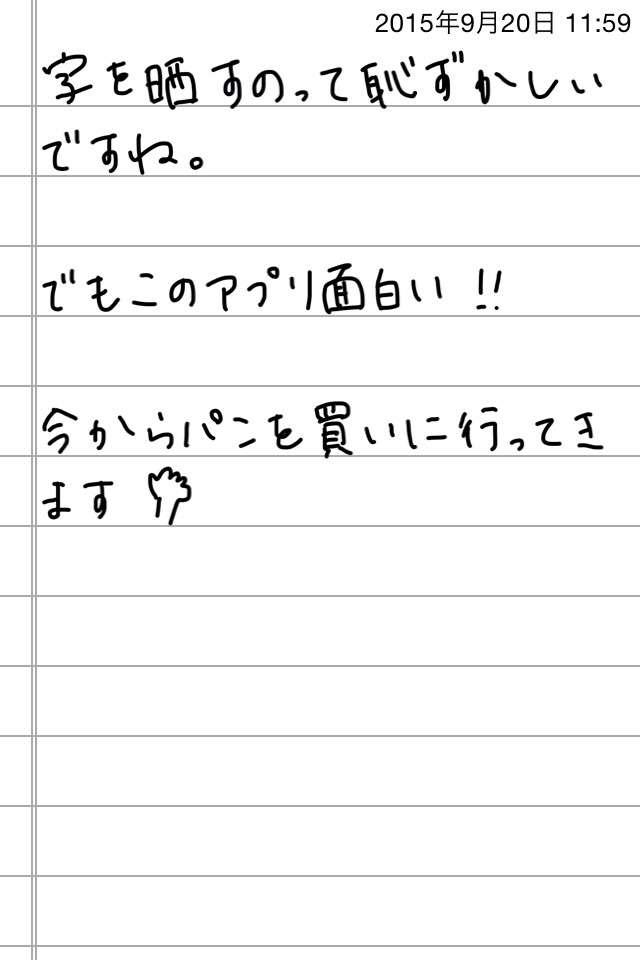 2015年9月20日 11:59
字を晒すのって恥ずかしい
ですね。
でもこのアプリ面白い!!
今からパンを買いに行ってき
ます